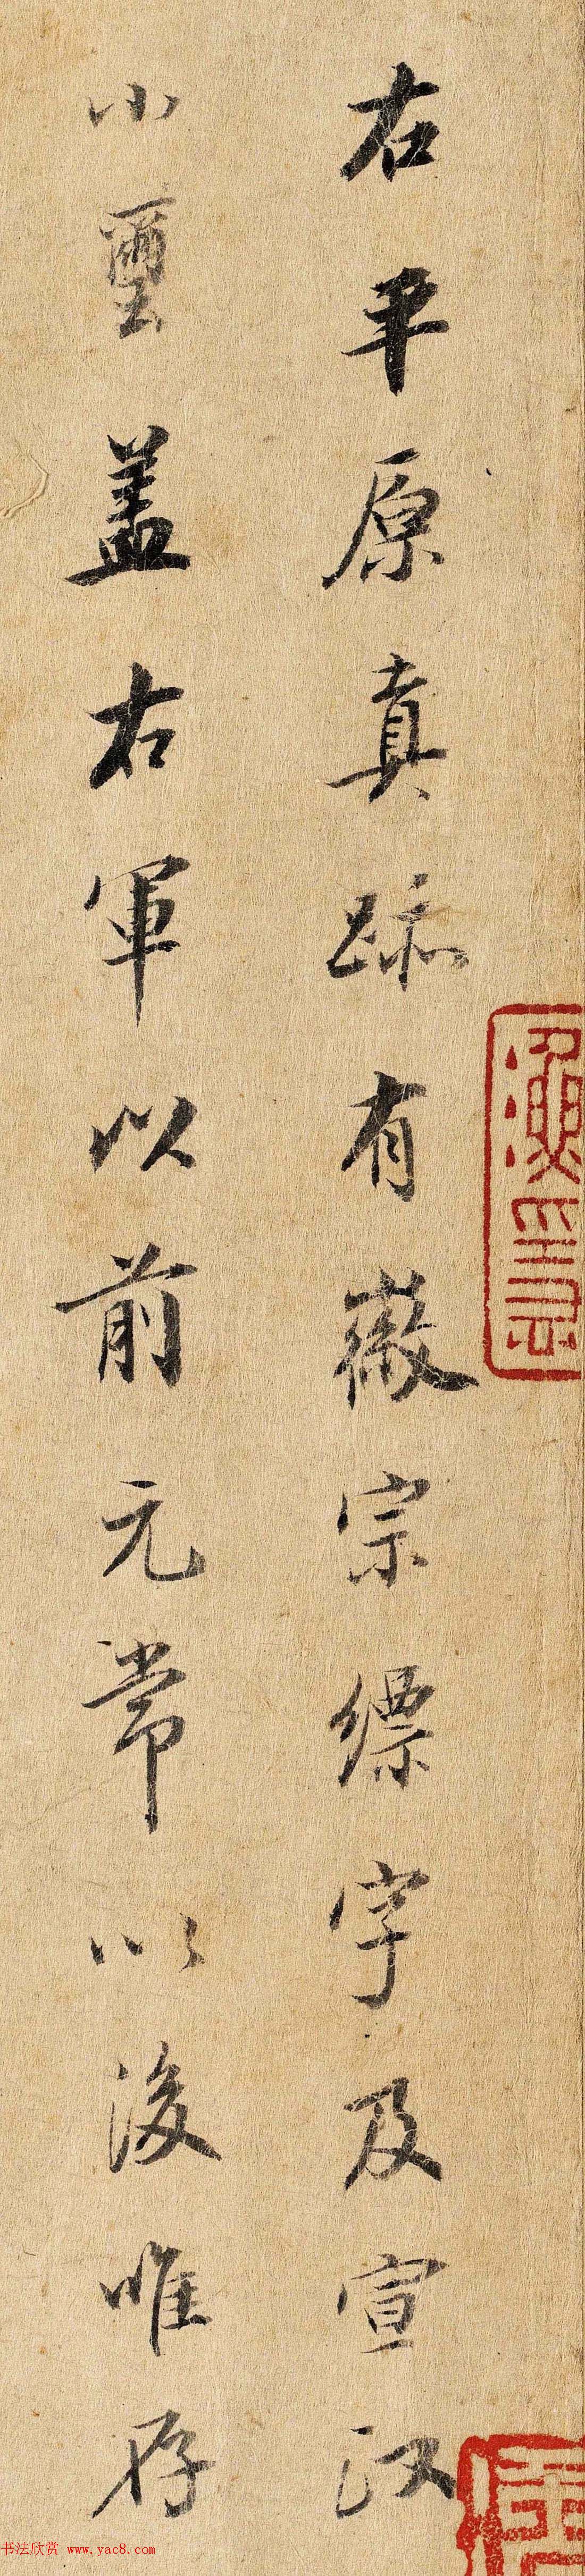 右平原真跡有徽宗縹字及宣政
小璽蓋右軍以前元常以後唯存
書法欣賞 www.yac8.com